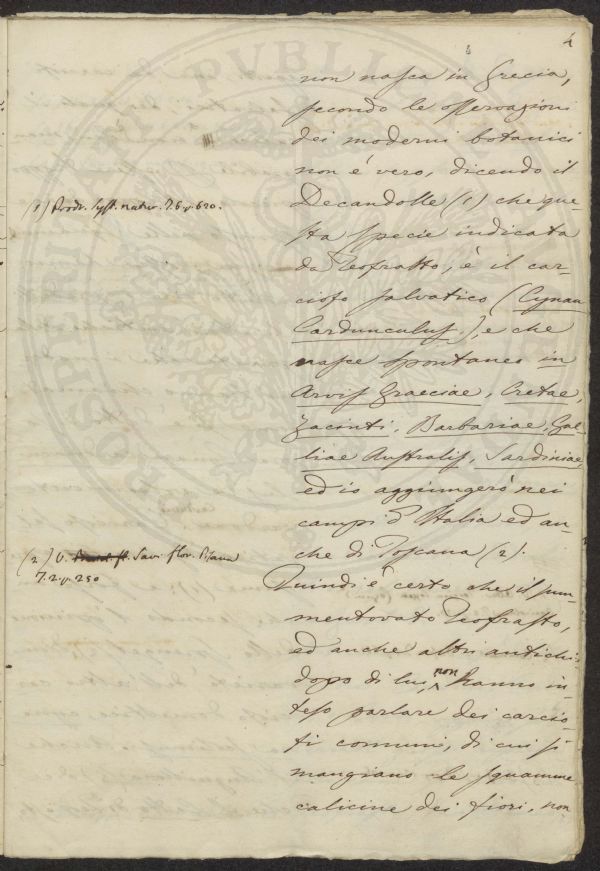 4
non nasca in Grecia,
secondo le osservazioni
dei moderni botanici
non è vero, dicendo il
Decandolle (1) che que-
sta specie indicata
da Teofrasto, è il car-
ciofo salvatico (Cynara
Cardunculus), e che
nasce spontaneo in
Arvis Graeciae, Cretae,
Zacinti, Barbariae, Gal-
liae Australis, Sardiniae,
ed io aggiungerò nei
campi d'Italia ed an-
che di Toscana (2).
Quindi è certo che il sum-
mentovato Teofrasto,
ed anche altri antichi
dopo di lui, non hanno in
teso parlare dei carcio-
fi comuni, di cui si
mangiano le squamme
calicine dei fiori, non
(1) Prodr. Syst. natur. T. 6. p. 620.
(2) V. Savi flor. Pisana
T. 2. p. 250